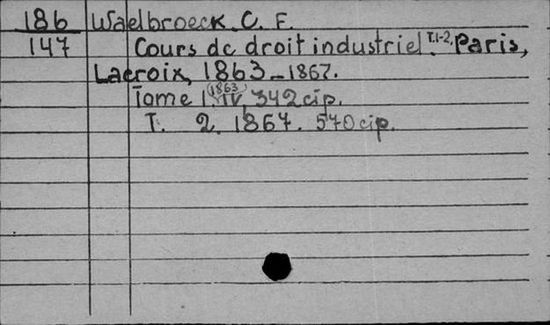 186 Waelbroeck. C. F.
147 Cours de droit industriel. T.1-2. Paris,
Lacroix, 1863-1867.
Tome 1 (1863) IV, 342 cip.
T. 2. 1867. 570 cip.